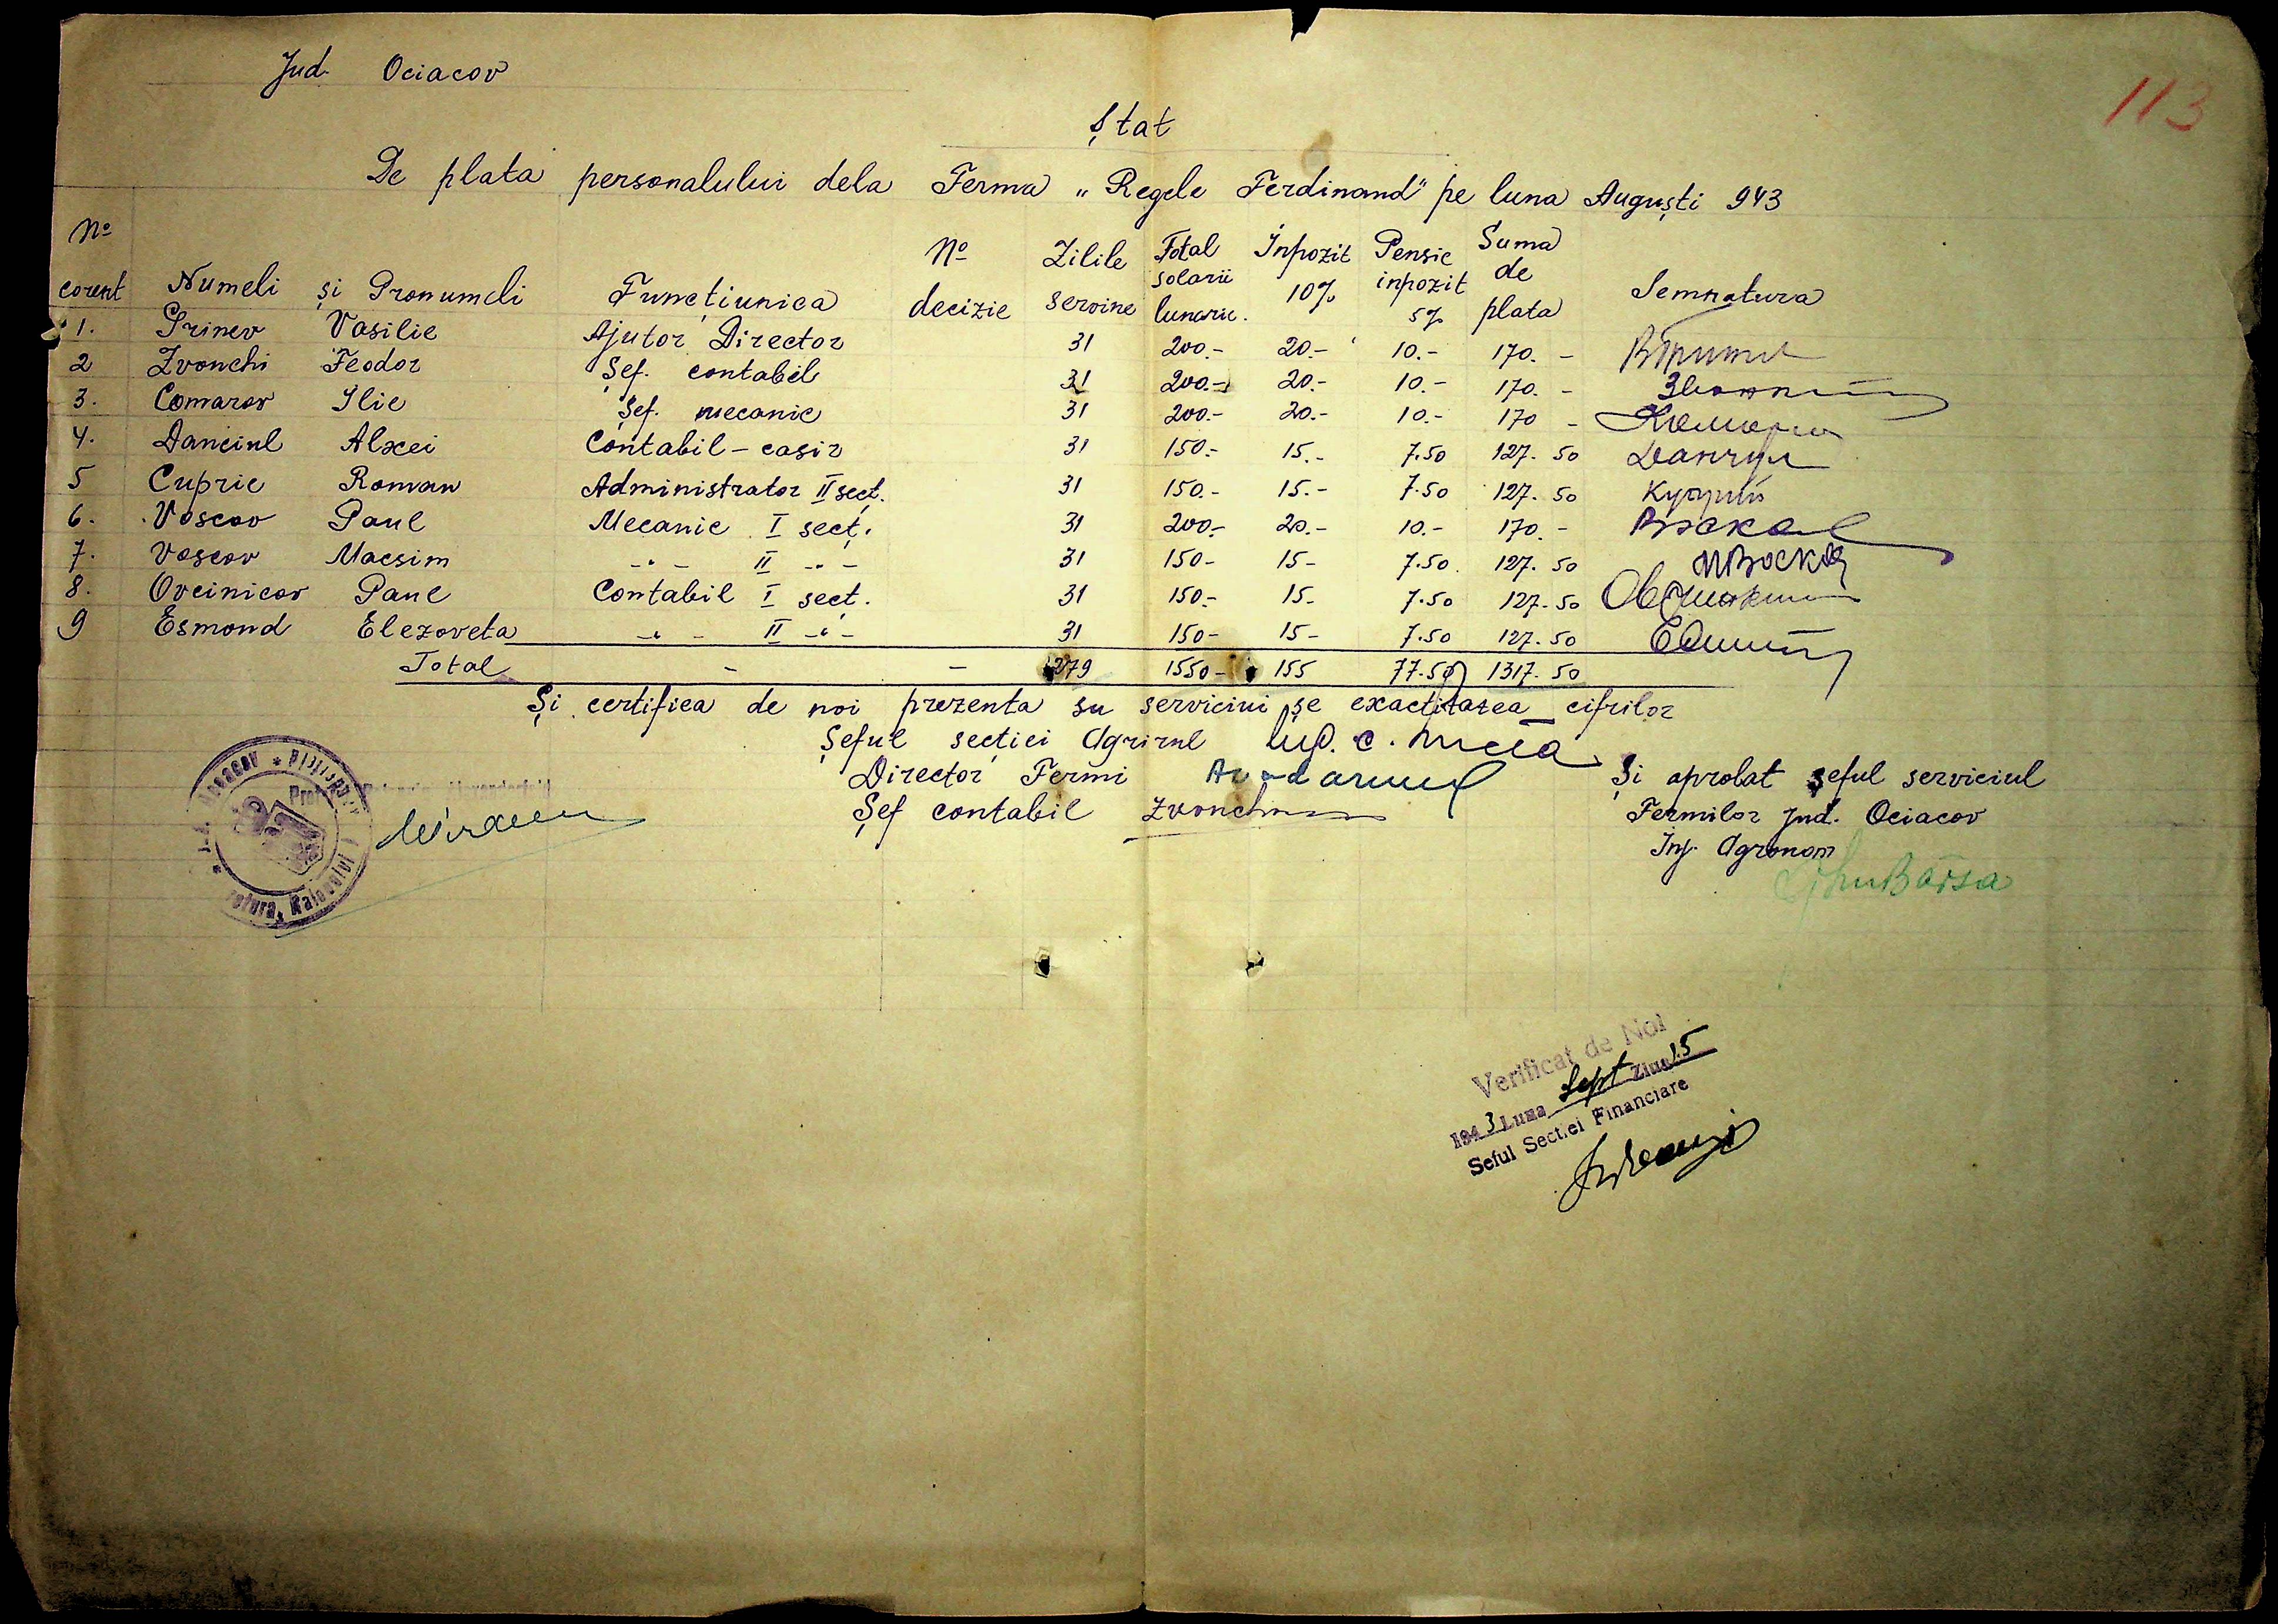 113
Jud. Ociacov
Ștat
De plata personalului dela Ferma „Regele Ferdinand" pe luna Auguști 943
No corent Numeli și Pronumeli Funcțiunica No decizie Zilile servine Total solarii lunarie. Inpozit 10% Pensie inpozit 5% Suma de plata Semnatura
1. Grinev Vasilie Ajutor Director 31 200.- 20.- 10.- 170. -
2 Zvonchi Feodor Șef. contabil 31 200.- 20.- 10.- 170. -
3. Comarov Ilie Șef. mecanic 31 200.- 20.- 10.- 170 -
4. Danciul Alxei Contabil-casir 31 150.- 15.- 7.50 127. 50 Данчул
5 Cupric Roman Administrator II secț. 31 150.- 15.- 7.50 127. 50
6. Voscov Paul Mecanic I secț. 31 200.- 20.- 10.- 170. -
7. Voscov Macsim -"- II -"- 31 150- 15- 7.50. 127. 50
8. Ovcinicov Paul Contabil I sect. 31 150.- 15- 7.50 127. 50
9 Esmond Elezoveta -"- II -"- 31 150- 15- 7.50 127. 50
Total - - 279 1550- 155 77.50 1317. 50
Și certifica de noi prezenta su serviciui șe exactitatea cifrilor
Șeful secției Agrirul
Director Fermi
Șef contabil Zvonchi
Și aprobat șeful serviciul
Fermilor Jud. Ociacov
Inj. Agronom
Verificat de Noi
1943 Luna Sept Ziua 15
Seful Secției Financiare